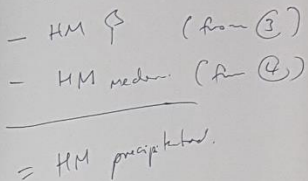 - HM (from ③)
- HM meden. (fm ④)
= HM precipitated.